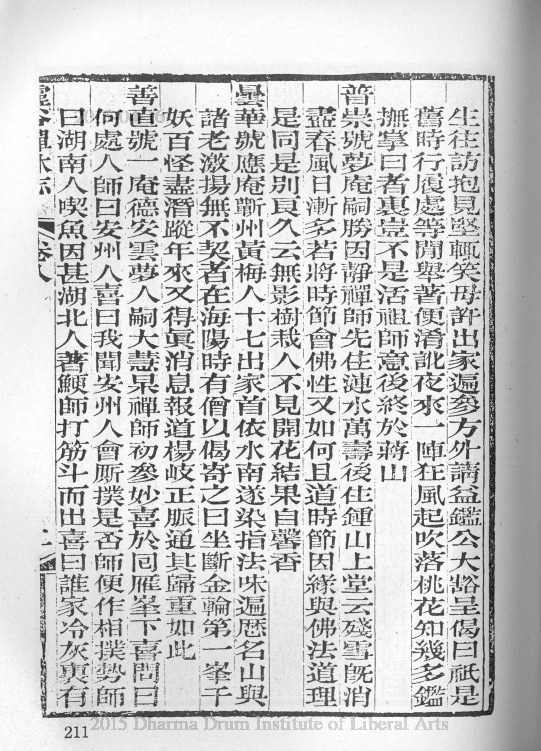 生往訪抱見豎輒笑母許出家遍參方外請益鑑公大豁呈偈曰祇是
舊時行履處等閒舉著便淆訛夜來一陣狂風起吹落桃花知幾多鑑
撫掌曰者裏豈不是活祖師意後終於蔣山
普崇號夢庵嗣勝因靜禪師先住漣水萬壽後住鍾山上堂云殘雪旣消
盡春風日漸多若將時節會佛性又如何且道時節因緣與佛法道理
是同是別良久云無影樹栽人不見開花結果自馨香
曇華號應庵蘄州黃梅人十七出家首依水南遂染指法味遍歷名山與
諸老激揚無不契者在海陽時有僧以偈寄之曰坐斷金輪第一峯千
妖百怪盡潛蹤年來又得眞消息報道楊岐正脈通其歸重如此
善直號一庵德安雲夢人嗣大慧杲禪師初參妙喜於囘雁峯下喜問曰
何處人師曰安州人喜曰我聞安州人會厮撲是否師便作相撲勢師
曰湖南人喫魚因甚湖北人著鯁師打筋斗而出喜曰誰家冷灰裏有
靈谷禪林志 卷八
211
2015 Dharma Drum Institute of Liberal Arts